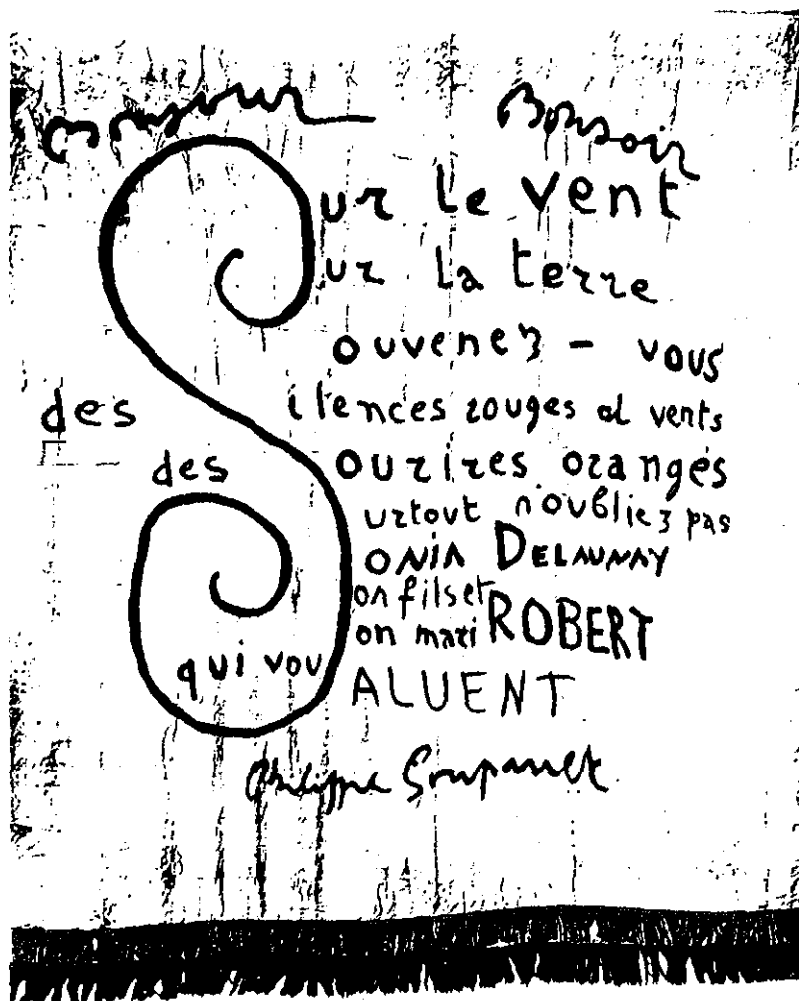 Bonjour Bonsoir
Sur le vent
ur la terre
ouvenez - vous
des ilences rouges et verts
des ourires oranges
urtout n'oubliez pas
onia DELAUNAY
on fils et
on mari ROBERT
qui vou ALUENT
Philippe Soupault